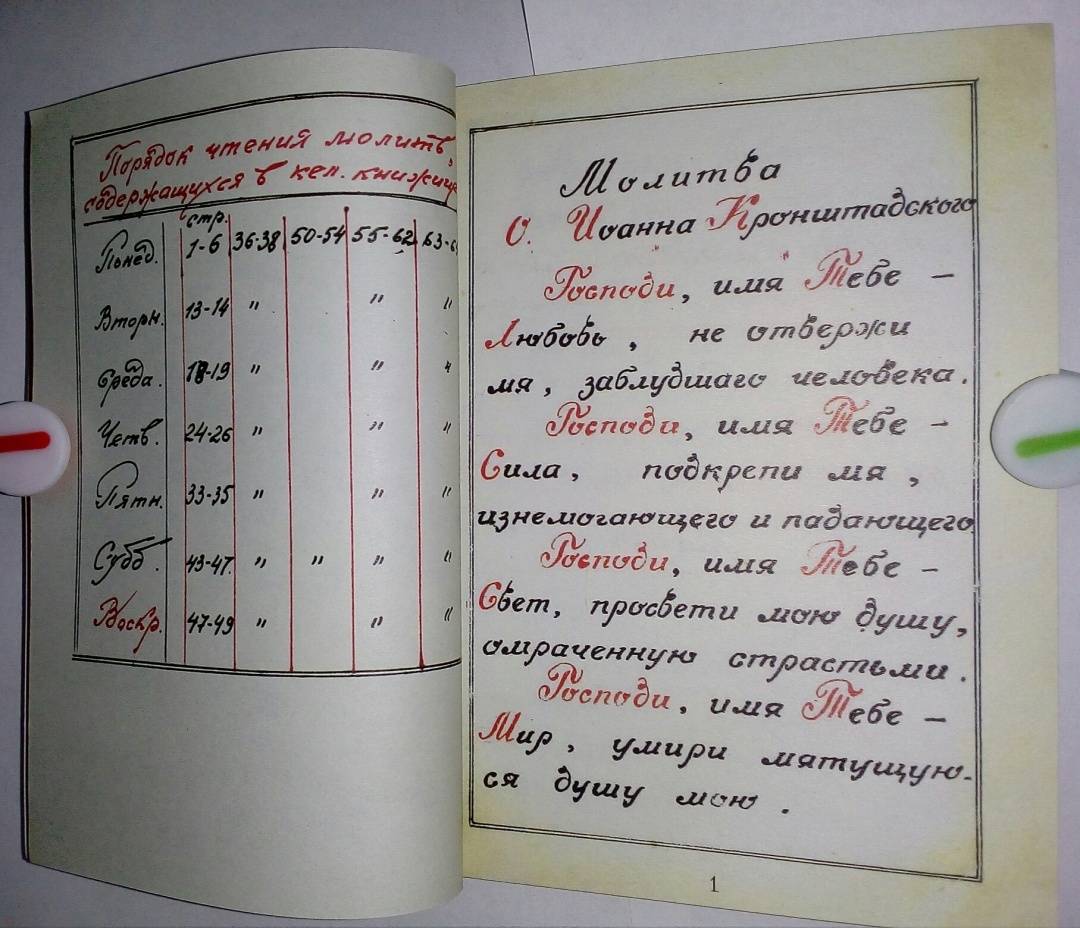 Порядок чтения молитв,
содержащихся в кел. книжице
стр.
Понед. 1-6 36-38 50-54 55-62 63-6
Вторн. 13-14 " " "
Среда. 18-19 " " "
Четв. 24-26 " " "
Пятн. 33-35 " " "
Субб. 43-47. " " " "
Воскр. 47-49 " " "
Молитва
О. Иоанна Кронштадского
Господи, имя Тебе –
Любовь, не отвержи
мя, заблудшаго человека.
Господи, имя Тебе –
Сила, подкрепи мя,
изнемогающего и падающего.
Господи, имя Тебе –
Свет, просвети мою душу,
омраченную страстьми.
Господи, имя Тебе –
Мир, умири мятущую-
ся душу мою.
1